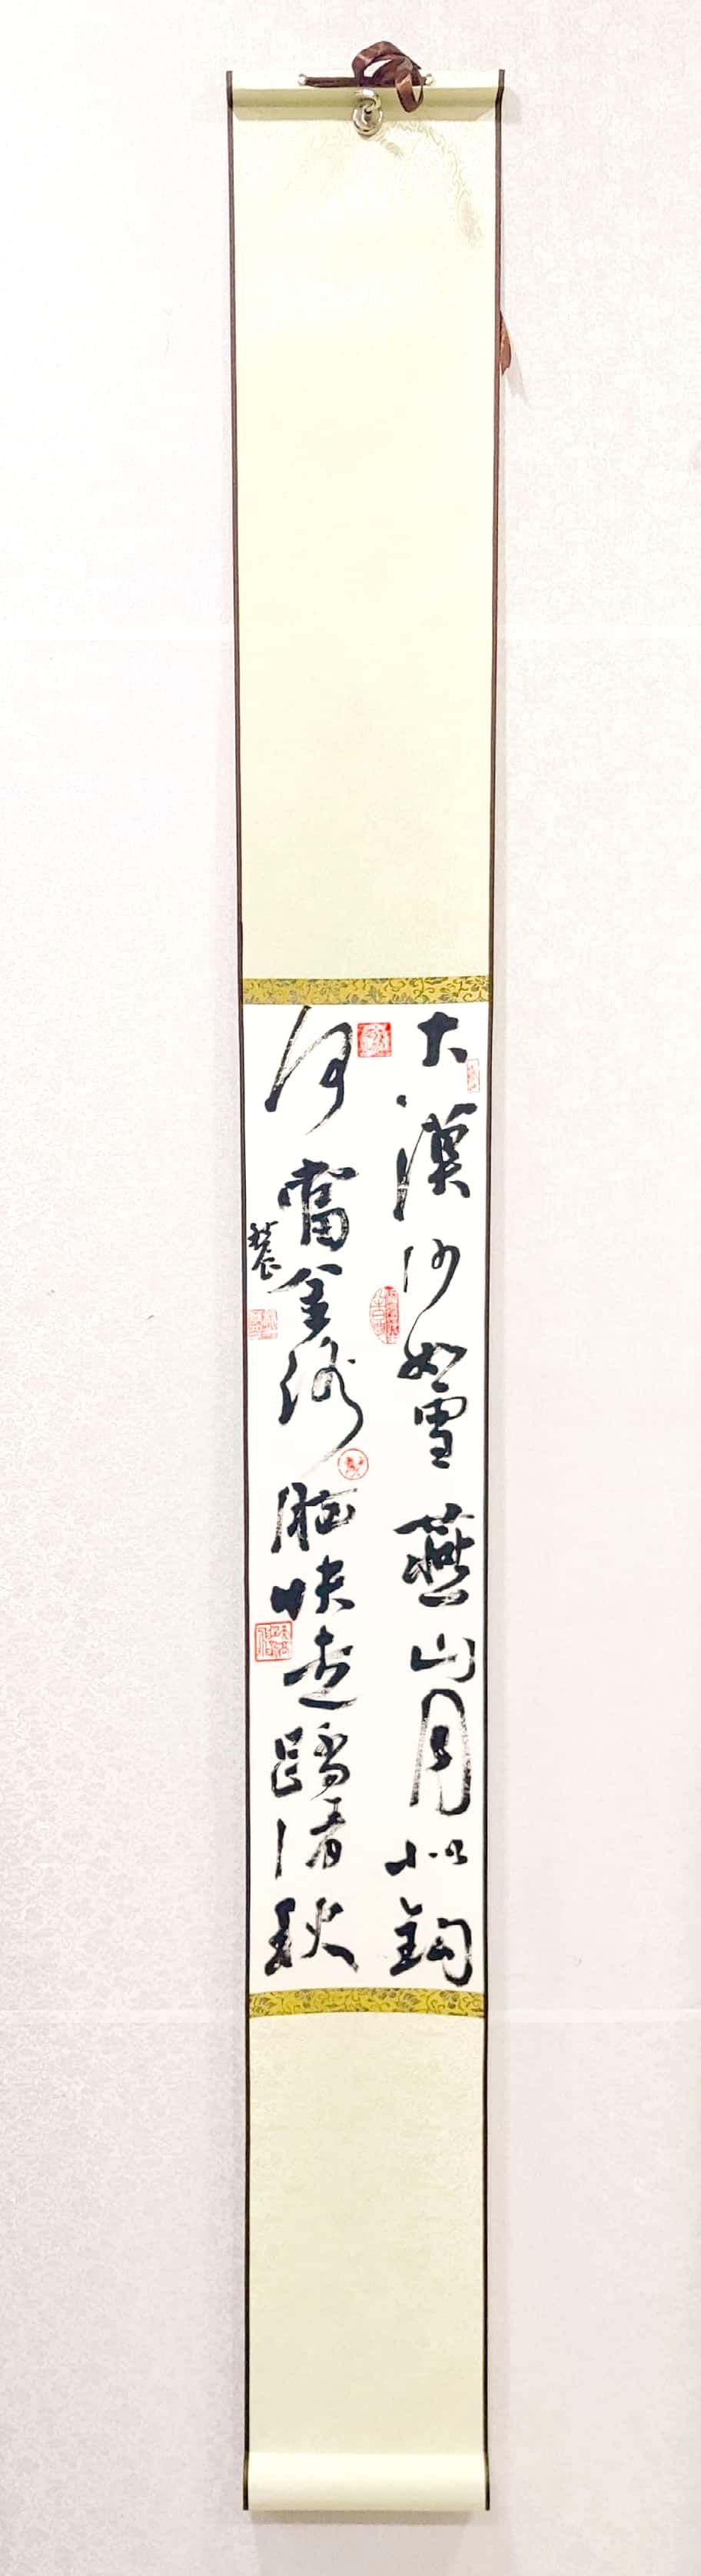 大漠沙如雪燕山月似鈎
何當金絡腦快走踏清秋